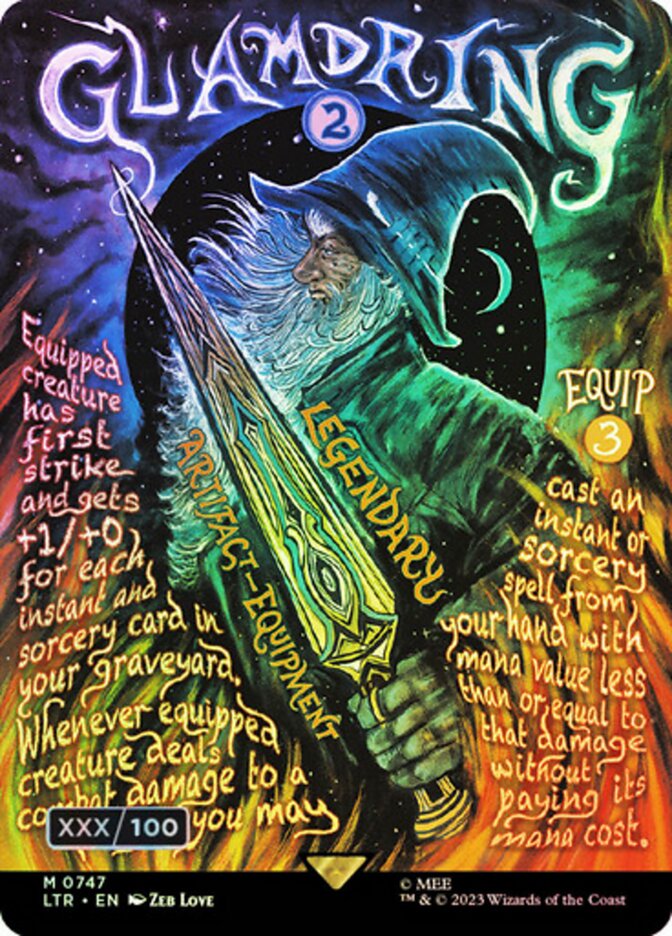 GLAMDRING
2
Equipped
creature
has
first
strike
and gets
+1/+0
for each
instant and
sorcery card in
your graveyard.
Whenever equipped
creature deals
combat damage to a
you may
LEGENDARY
ARTIFACT–EQUIPMENT
EQUIP
3
cast an
instant or
sorcery
spell from
your hand with
mana value less
than or equal to
that damage
without
paying its
mana cost.
XXX/100
M 0747
LTR • EN Zeb Love
© MEE
™ & © 2023 Wizards of the Coast